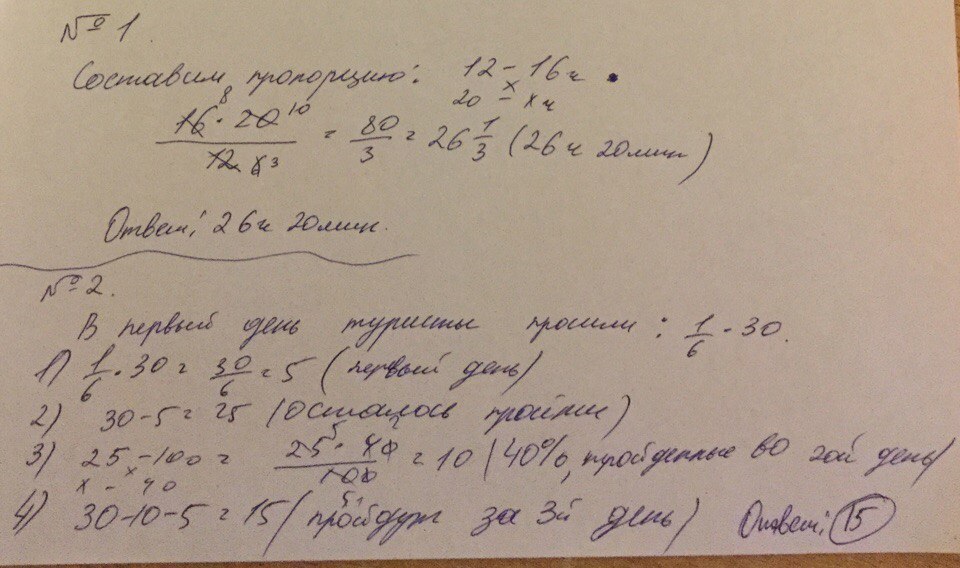 № 1.
Составим пропорцию: 12 – 16ч
20 – xч
16 · 20 / 12 = 80/3 = 26 1/3 (26ч 20мин)
Ответ: 26ч 20мин.
№ 2.
В первый день туристы прошли: 1/6 · 30.
1) 1/6 · 30 = 30/6 = 5 (первый день)
2) 30-5 = 25 (осталось пройти)
3) 25 – 100 = 25 · 40 / 100 = 10 (40%, пройденные во 2ой день)
x – 40
4) 30-10-5 = 15 (пройдут за 3й день) Ответ: 15